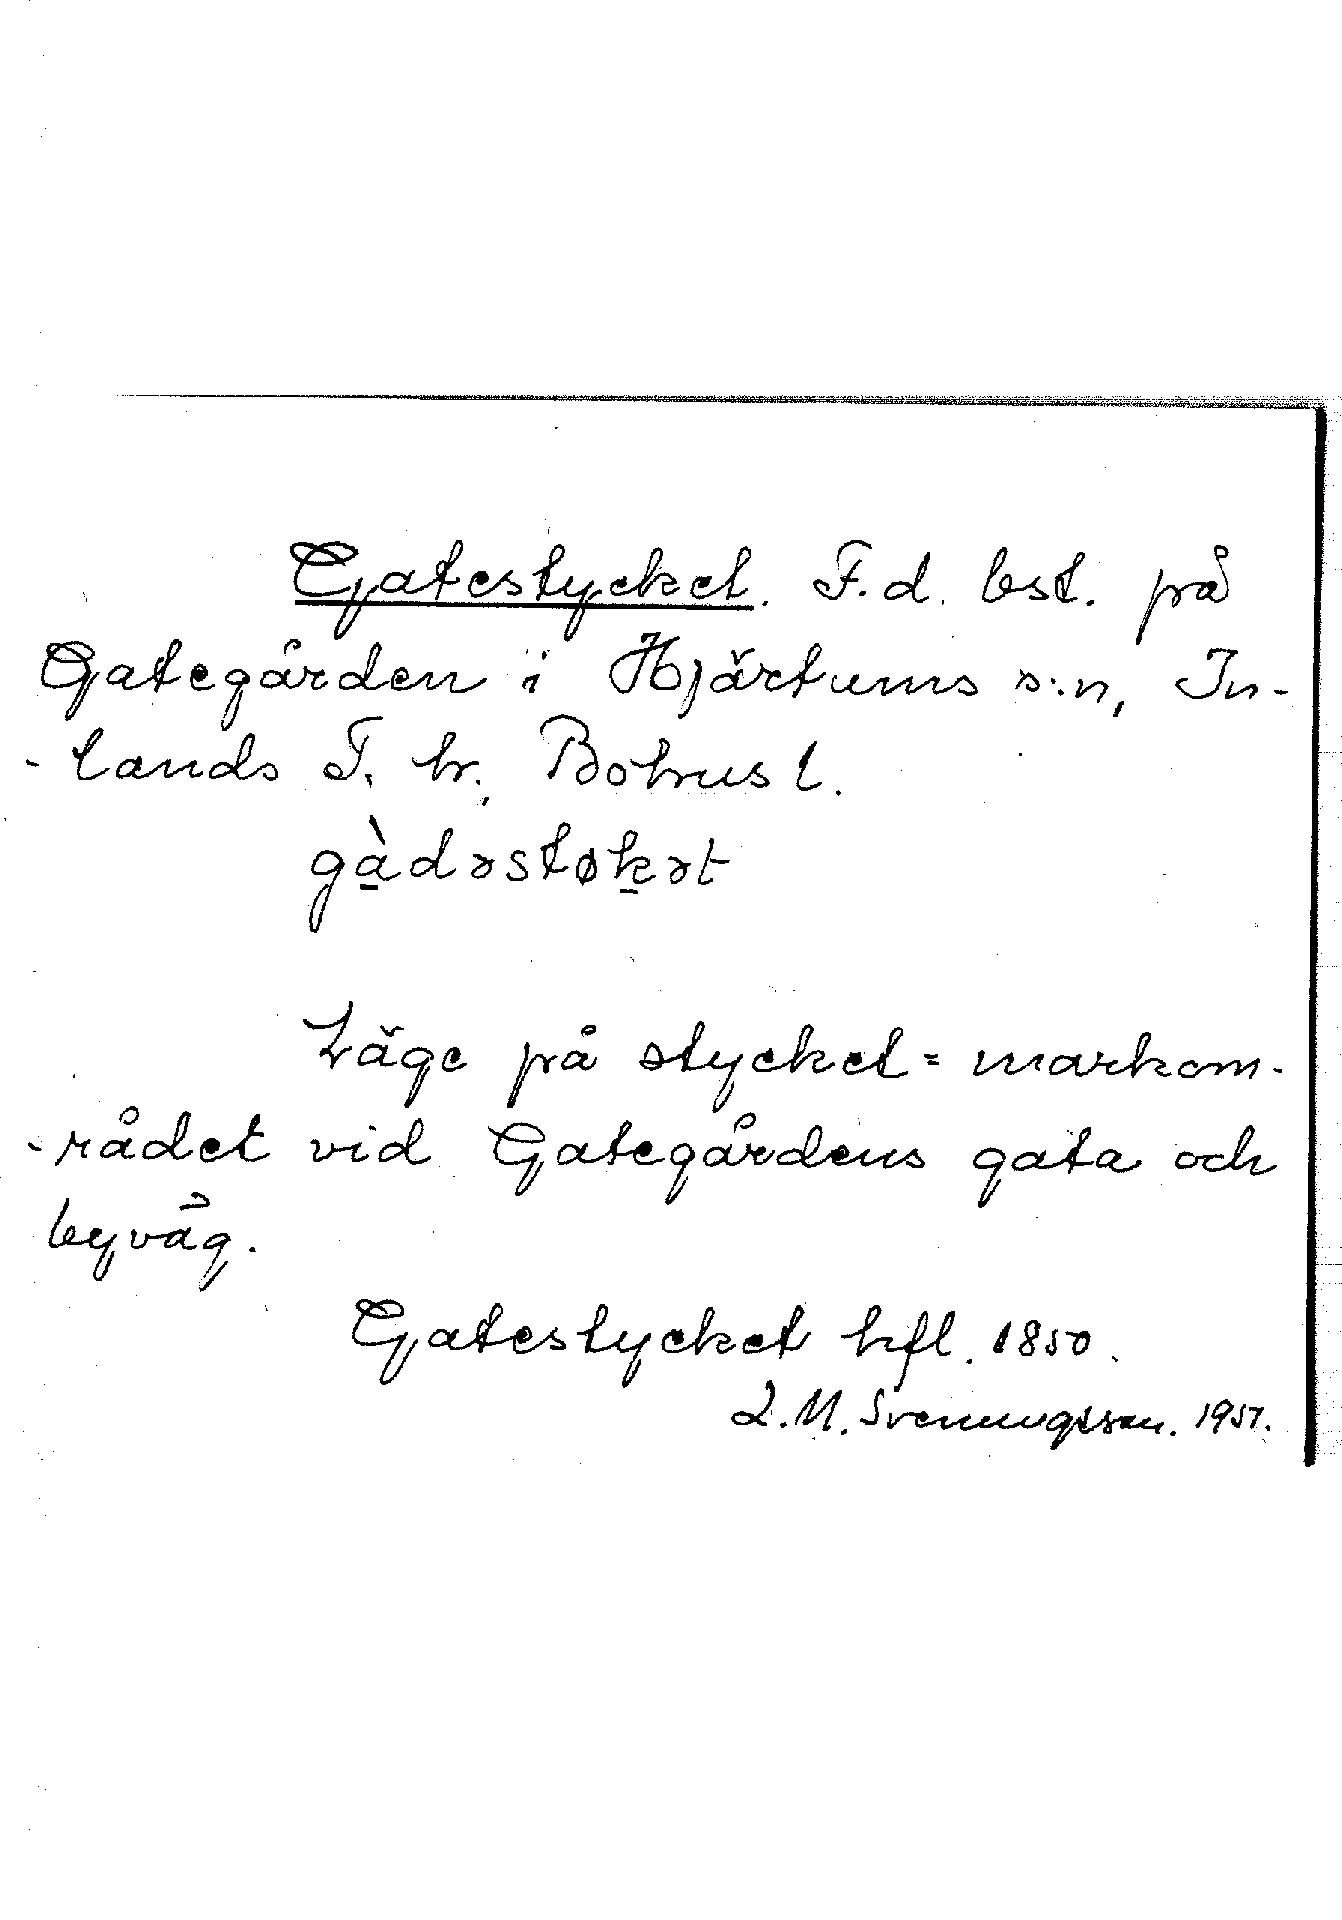 Gatestycket. F.d. bst. på
Gategården i Hjärtums s:n, In-
-lands T. hr. Bohusl.
gàdəstøkət
Läge på stycket = markom-
-rådet vid Gategårdens gata och
byväg.
Gatestycket hfl. 1850.
L.M. Svenungsson. 1957.